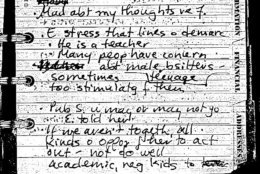 Had abt my thoughts re 7.
. E stress that lines o demarc
. He is a teacher
. Many people have concern
abt male bsitters -
sometimes teenage
too stimulatg f them
. Pub S. u may or may not go
E. told her
If we aren't togeth, all
kinds o oppor f her to act
out - not do well
academic, neg kids to
FINANCIAL
ADDRESSES